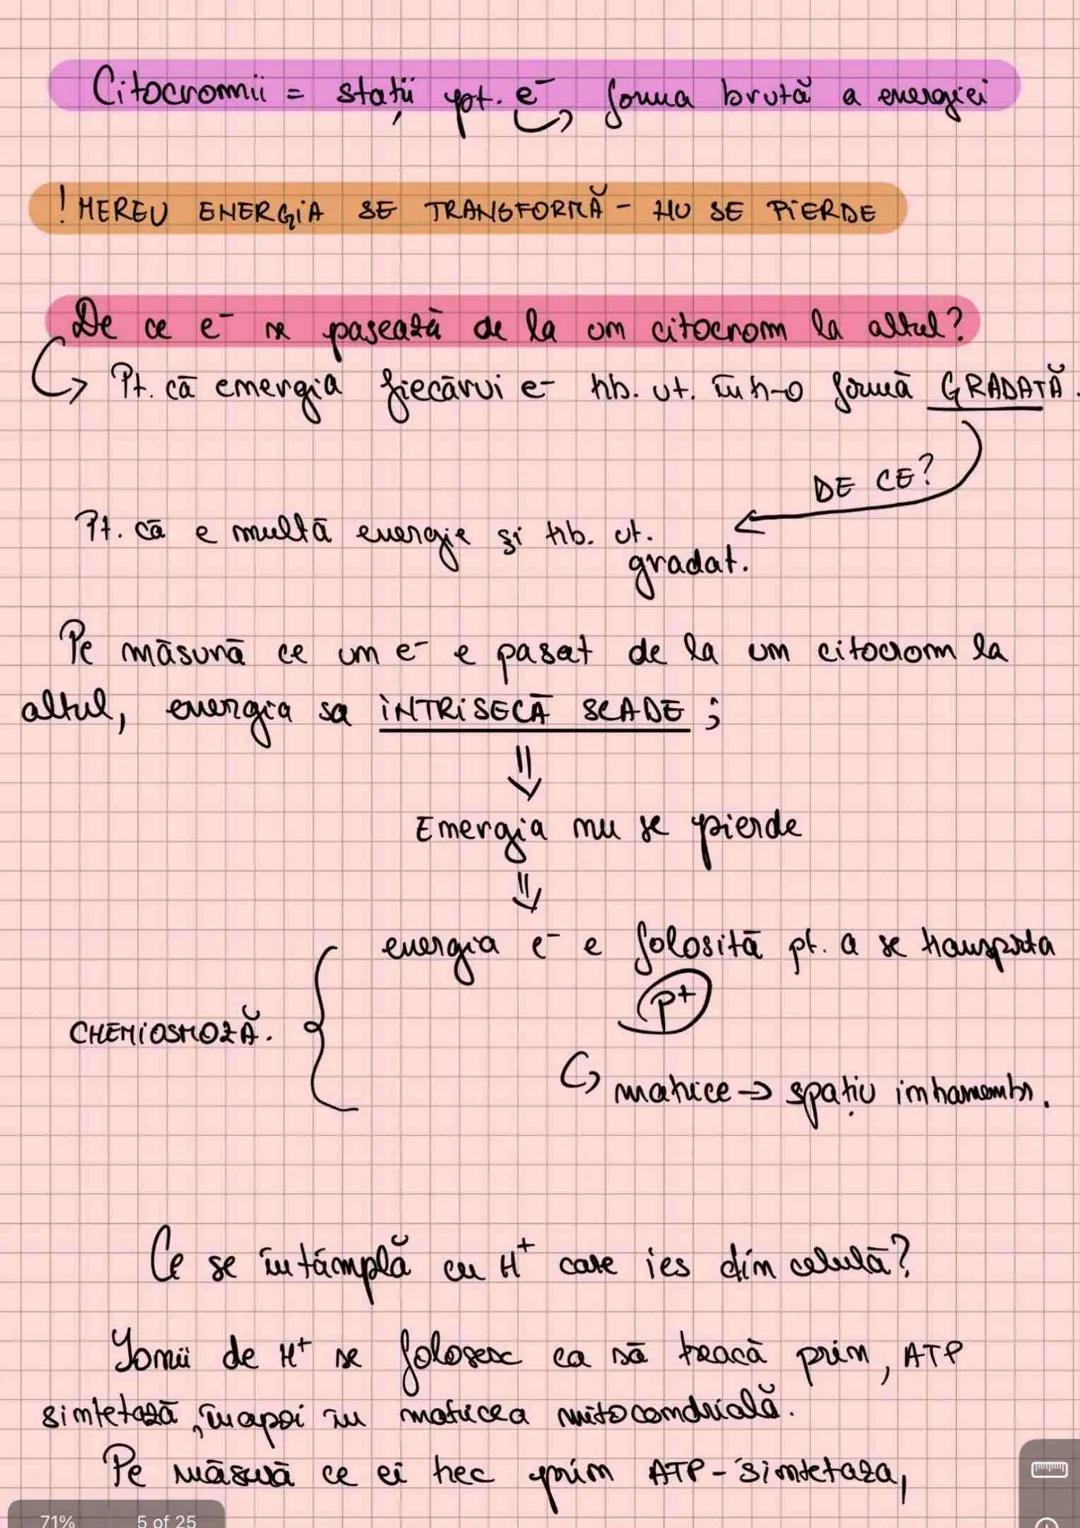 Citocromii = stații pt. e⁻ ↪ forma brută a energiei
! MEREU ENERGIA SE TRANSFORMĂ - NU SE PIERDE
De ce e⁻ se pasează de la un citocrom la altul?
↪ Pt. că energia fiecărui e⁻ trb. ut. într-o formă GRADATĂ.
DE CE?
Pt. că e multă energie și trb. ut.
gradat.
Pe măsură ce un e⁻ e pasat de la un citocrom la
altul, energia sa INTRISECĂ SCADE ;
⇓
Energia nu se pierde
⇓
energia e⁻ e folosită pt. a se transporta
p+
CHEMIOSMOZĂ.
↪ matrice → spațiu intramembr.
Ce se întâmplă cu H⁺ care ies din celulă?
Ionii de H⁺ se folosesc ca să treacă prin, ATP
sintetază, înapoi în matricea mitocondrială.
Pe măsură ce ei trec prin ATP-sintetaza,
71% 5 of 25